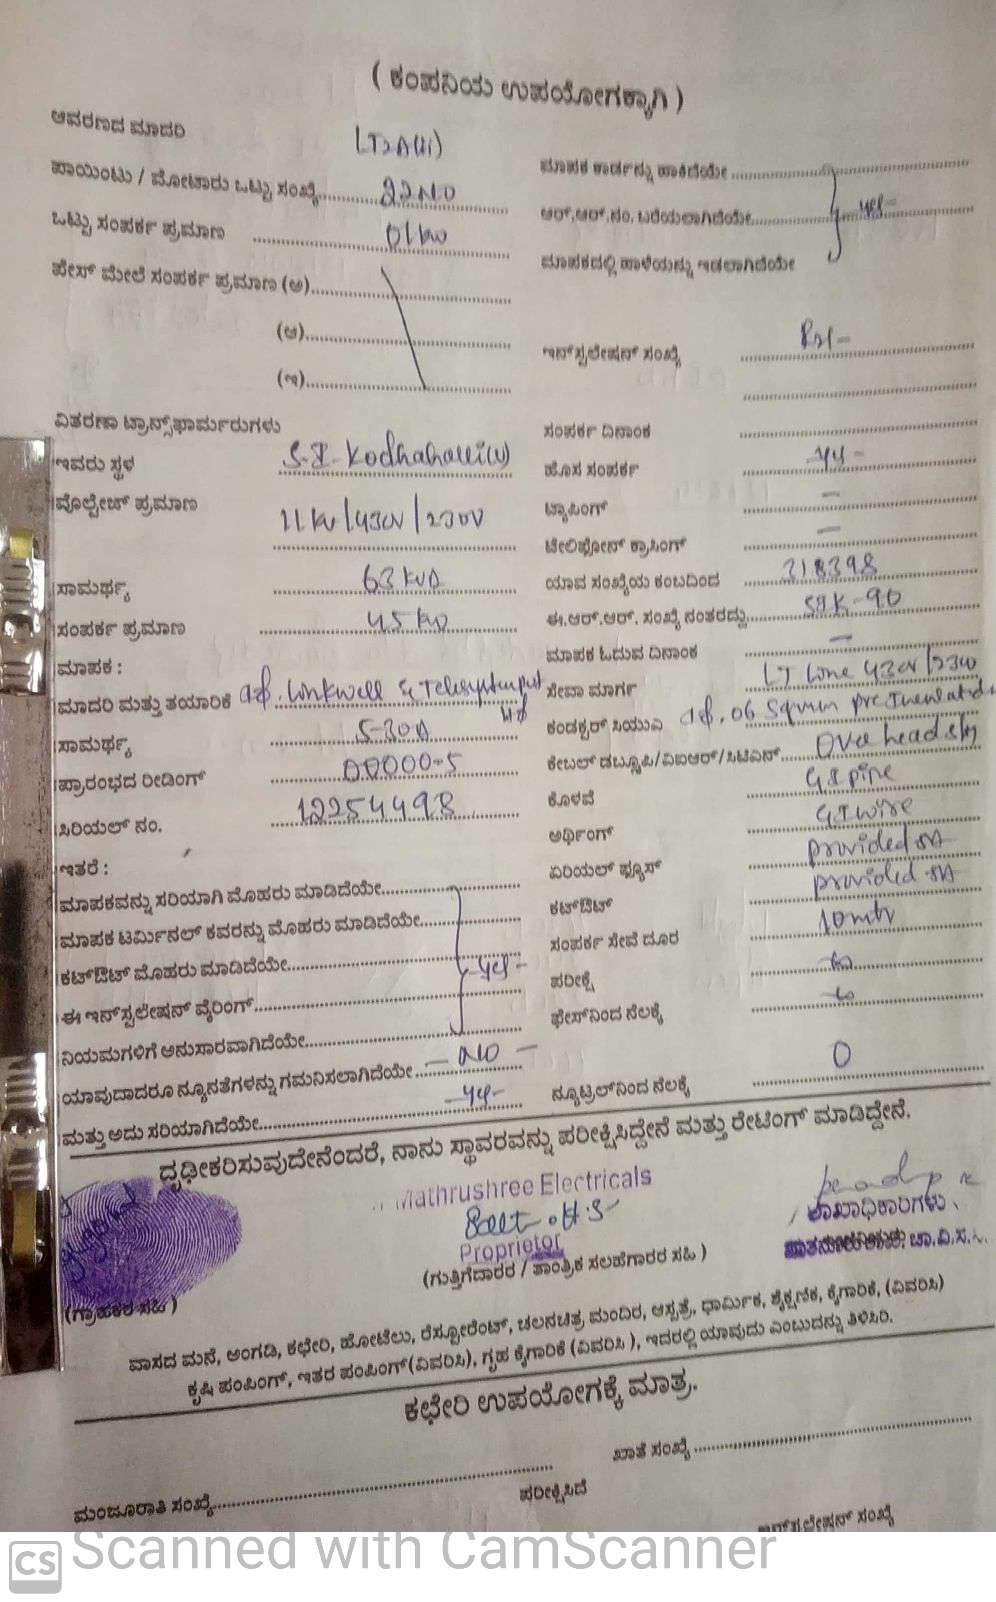 ( ಕಂಪನಿಯ ಉಪಯೋಗಕ್ಕಾಗಿ )
ಆವರಣದ ಮಾದರಿ LT2A(ii)
ಪಾಯಿಂಟು / ಮೋಟಾರು ಒಟ್ಟು ಸಂಖ್ಯೆ 22NO
ಒಟ್ಟು ಸಂಪರ್ಕ ಪ್ರಮಾಣ 01kw
ಪೇಸ್ ಮೇಲೆ ಸಂಪರ್ಕ ಪ್ರಮಾಣ (ಅ)
(ಆ)
(ಇ)
ವಿತರಣಾ ಟ್ರಾನ್ಸ್‌ಫಾರ್ಮರುಗಳು
ಇವರು ಸ್ಥಳ S.I. Kodhahalli(V)
ವೊಲ್ಟೇಜ್ ಪ್ರಮಾಣ 11kv/430V/230V
ಸಾಮರ್ಥ್ಯ 63kVA
ಸಂಪರ್ಕ ಪ್ರಮಾಣ 45kw
ಮಾಪಕ :
ಮಾದರಿ ಮತ್ತು ತಯಾರಿಕೆ 1ø. Linkwell & Telesystem pvt
ltd
ಸಾಮರ್ಥ್ಯ 5-30A
ಪ್ರಾರಂಭದ ರೀಡಿಂಗ್ 00000-5
ಸಿರಿಯಲ್ ನಂ. 12254498
ಇತರೆ :
ಮಾಪಕವನ್ನು ಸರಿಯಾಗಿ ಮೊಹರು ಮಾಡಿದೆಯೇ
ಮಾಪಕ ಟರ್ಮಿನಲ್ ಕವರನ್ನು ಮೊಹರು ಮಾಡಿದೆಯೇ
ಕಟ್‌ಔಟ್ ಮೊಹರು ಮಾಡಿದೆಯೇ yes-
ಈ ಇನ್‌ಸ್ಟಲೇಷನ್ ವೈರಿಂಗ್
ನಿಯಮಗಳಿಗೆ ಅನುಸಾರವಾಗಿದೆಯೇ
ಯಾವುದಾದರೂ ನ್ಯೂನತೆಗಳನ್ನು ಗಮನಿಸಲಾಗಿದೆಯೇ - NO -
ಮತ್ತು ಅದು ಸರಿಯಾಗಿದೆಯೇ -yes-
ಮಾಪಕ ಕಾರ್ಡನ್ನು ಹಾಕಿದೆಯೇ
ಆರ್.ಆರ್.ನಂ. ಬರೆಯಲಾಗಿದೆಯೇ yes-
ಮಾಪಕದಲ್ಲಿ ಹಾಳೆಯನ್ನು ಇಡಲಾಗಿದೆಯೇ
ಇನ್‌ಸ್ಟಲೇಷನ್ ಸಂಖ್ಯೆ
ಸಂಪರ್ಕ ದಿನಾಂಕ
ಹೊಸ ಸಂಪರ್ಕ yes-
ಟ್ಯಾಪಿಂಗ್ -
ಟೆಲಿಫೋನ್ ಕ್ರಾಸಿಂಗ್ -
ಯಾವ ಸಂಖ್ಯೆಯ ಕಂಬದಿಂದ 318398
ಈ.ಆರ್.ಆರ್. ಸಂಖ್ಯೆ ನಂತರದ್ದು SIK-90
ಮಾಪಕ ಓದುವ ದಿನಾಂಕ -
ಸೇವಾ ಮಾರ್ಗ LT Line 430V/230V
ಕಂಡಕ್ಟರ್ ಸಿಯುಎ 1ø. 06 Sqmm
ಕೇಬಲ್ ಡಬ್ಲೂಪಿ/ವಿಐಆರ್/ಸಿಟಿಎಸ್ Over head
ಕೊಳವೆ G.I pipe
ಅರ್ಥಿಂಗ್ G.I wire
ಏರಿಯಲ್ ಫ್ಯೂಸ್ provided 5A
ಕಟ್‌ಔಟ್ provided 5A
ಸಂಪರ್ಕ ಸೇವೆ ದೂರ 10mtr
ಪರೀಕ್ಷೆ
ಫೇಸ್‌ನಿಂದ ನೆಲಕ್ಕೆ
ನ್ಯೂಟ್ರಲ್‌ನಿಂದ ನೆಲಕ್ಕೆ 0
ದೃಢೀಕರಿಸುವುದೇನೆಂದರೆ, ನಾನು ಸ್ಥಾವರವನ್ನು ಪರೀಕ್ಷಿಸಿದ್ದೇನೆ ಮತ್ತು ರೇಟಿಂಗ್ ಮಾಡಿದ್ದೇನೆ.
Mathrushree Electricals
Proprietor
ಶಾಖಾಧಿಕಾರಿಗಳು
ಚಾ.ವಿ.ಸ.
(ಗ್ರಾಹಕರ ಸಹಿ)
(ಗುತ್ತಿಗೆದಾರರ / ತಾಂತ್ರಿಕ ಸಲಹೆಗಾರರ ಸಹಿ )
ವಾಸದ ಮನೆ, ಅಂಗಡಿ, ಕಛೇರಿ, ಹೋಟೆಲು, ರೆಸ್ಟೋರೆಂಟ್, ಚಲನಚಿತ್ರ ಮಂದಿರ, ಆಸ್ಪತ್ರೆ, ಧಾರ್ಮಿಕ, ಶೈಕ್ಷಣಿಕ, ಕೈಗಾರಿಕೆ, (ವಿವರಿಸಿ)
ಕೃಷಿ ಪಂಪಿಂಗ್, ಇತರ ಪಂಪಿಂಗ್(ವಿವರಿಸಿ), ಗೃಹ ಕೈಗಾರಿಕೆ (ವಿವರಿಸಿ ), ಇದರಲ್ಲಿ ಯಾವುದು ಎಂಬುದನ್ನು ತಿಳಿಸಿರಿ.
ಕಛೇರಿ ಉಪಯೋಗಕ್ಕೆ ಮಾತ್ರ.
ಖಾತೆ ಸಂಖ್ಯೆ
ಮಂಜೂರಾತಿ ಸಂಖ್ಯೆ
ಪರೀಕ್ಷಿಸಿದೆ
ಇನ್‌ಸ್ಟಲೇಷನ್ ಸಂಖ್ಯೆ
CS Scanned with CamScanner